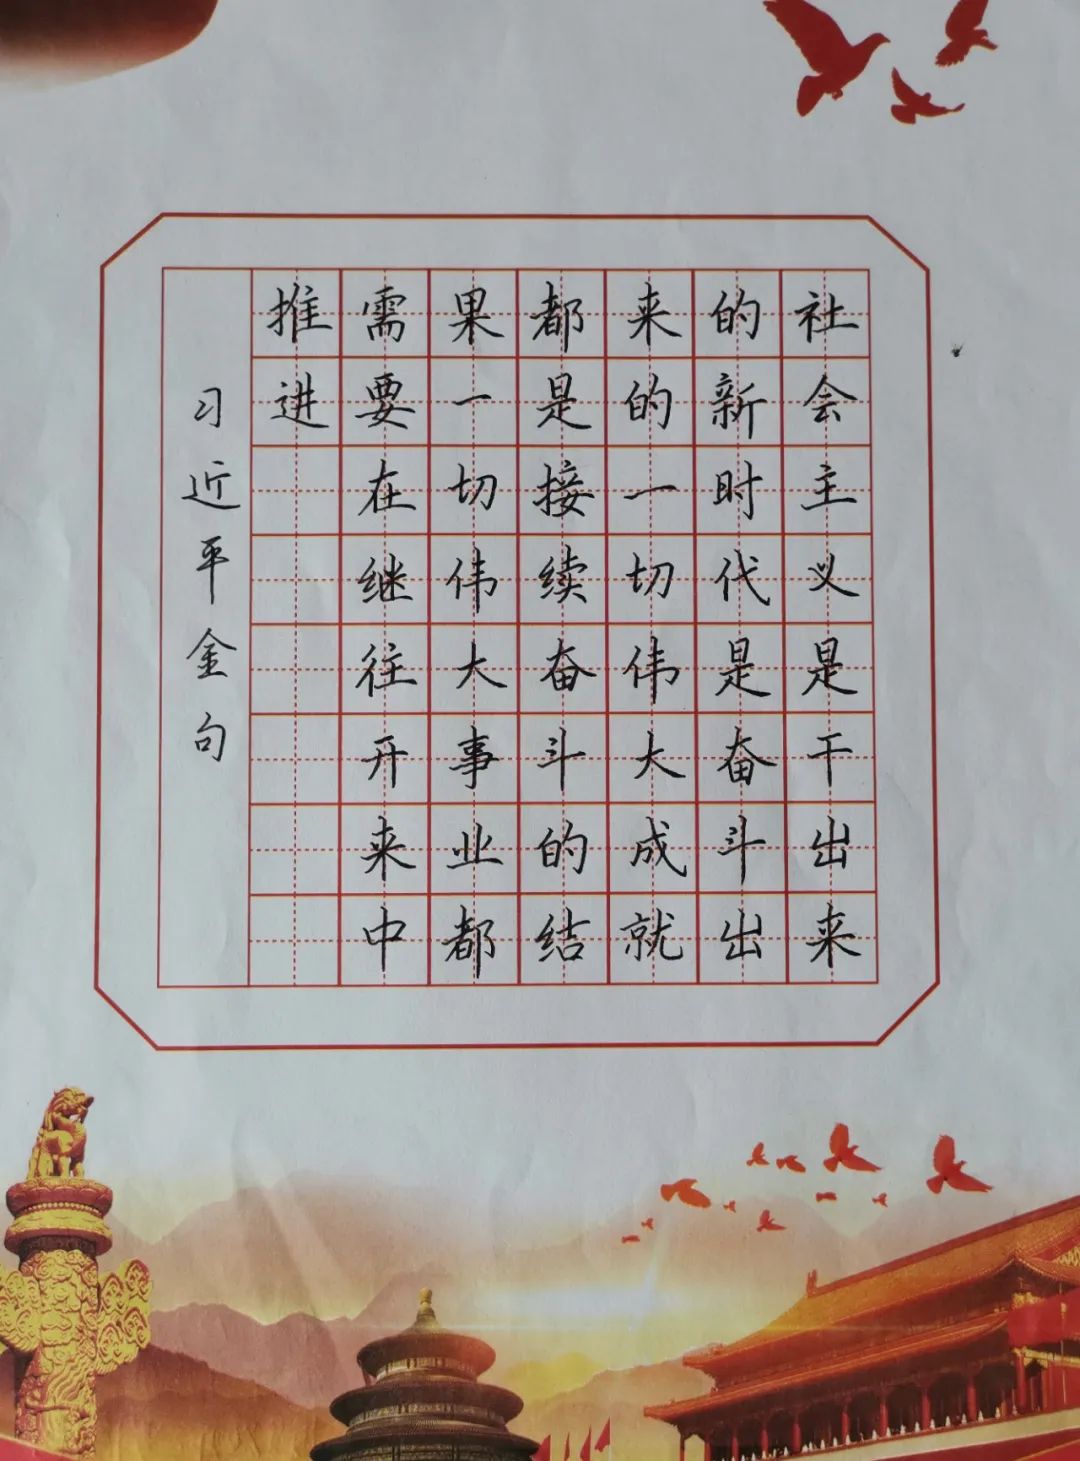 社会主义是干出来
的新时代是奋斗出
来的一切伟大成就
都是接续奋斗的结
果一切伟大事业都
需要在继往开来中
推进
习近平金句